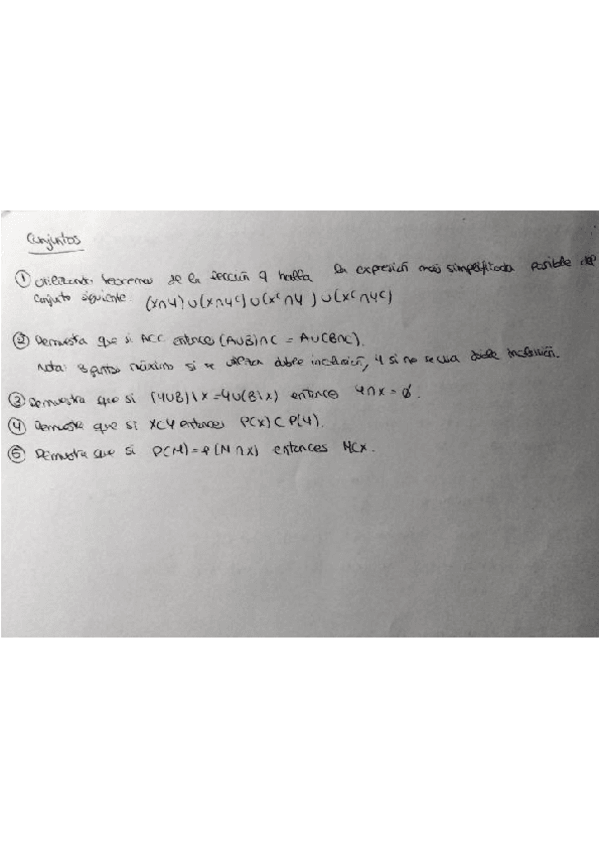 Conjuntos
① Utilizando teoremas de la sección 9 halla la expresión más simplificada posible del
conjunto siguiente: (X∩Y)∪(X∩Yᶜ)∪(Xᶜ∩Y)∪(Xᶜ∩Yᶜ)
② Demuestra que si A⊂C entonces (A∪B)∩C = A∪(B∩C).
Nota: 8 puntos máximo si se utiliza doble inclusión, 4 si no se usa doble inclusión.
③ Demuestra que si (Y∪B)\X=Y∪(B\X) entonces Y∩X=∅.
④ Demuestra que si X⊂Y entonces P(X)⊂P(Y).
⑤ Demuestra que si P(M)=P(M∩X) entonces M⊂X.